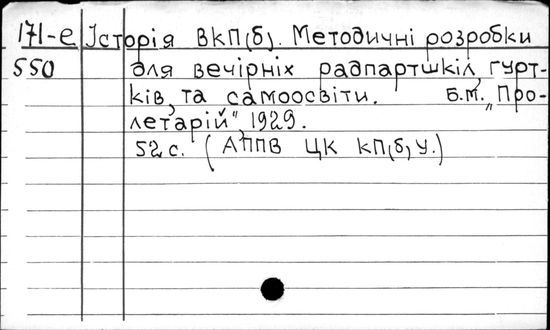 171-е Історія ВКП(б). Методичні розробки
550 для вечірніх радпартшкіл, гурт-
ків, та самоосвіти. Б.м. „Про-
летарій", 1929.
52 с. (АППВ ЦК КП(б)У.)